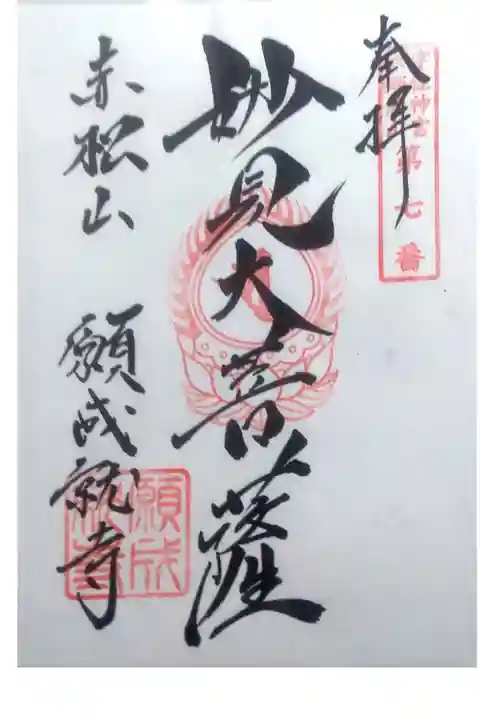 奉拝
第七番
妙見大菩薩
赤松山 願成就寺
願成就寺